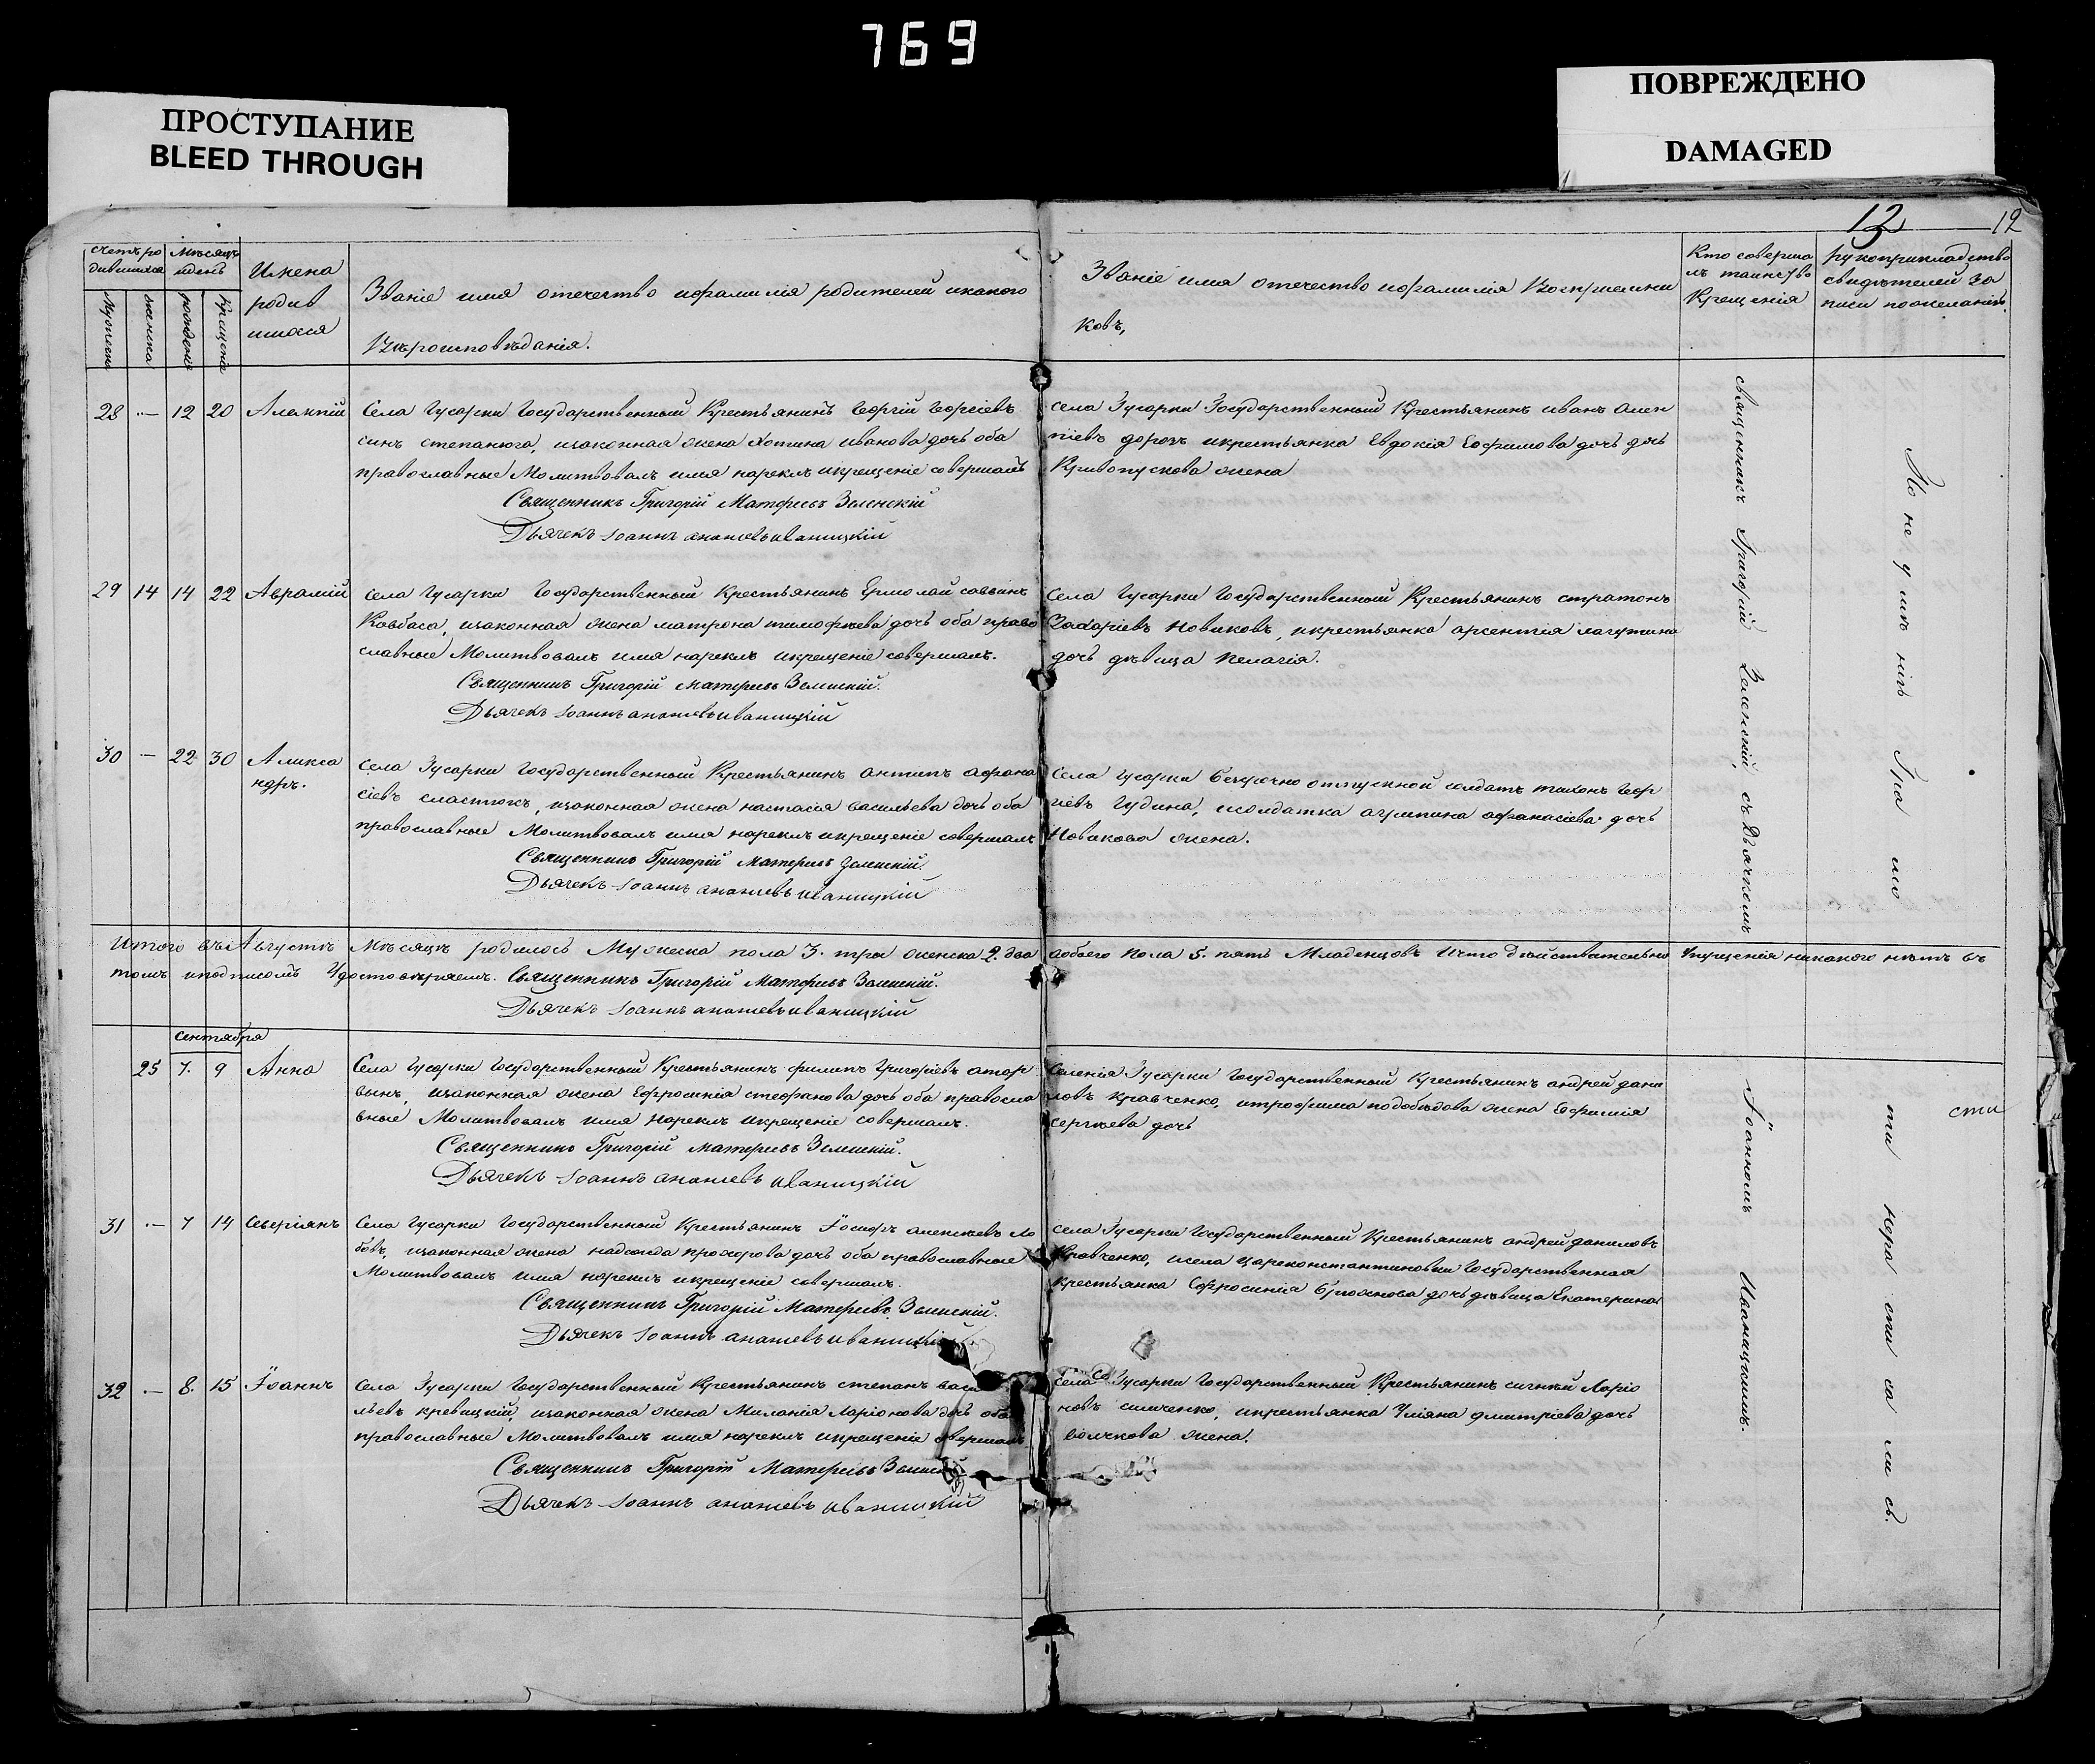 769
ПРОСТУПАНИЕ
BLEED THROUGH
ПОВРЕЖДЕНО
DAMAGED
12
12
счетъ ро
дившихся
Мѣсяцъ
идень
Имена
родив
шихся
Званіе имя отечество ифамилія родителей икакого
Вѣроисповѣданія.
Званіе имя отечество ифамилія Воспріемни
ковъ,
Кто соверша
лъ таинство
Крещенія
рукоприкладство
свидѣтелей за
писи пожеланію.
рожденія
крещенія
28 — 12 20
Села Гусарки Государственный Крестьянинъ Георгій Георгіевъ
синъ степанюга, изаконная жена Хотина иванова дочь оба
православные Молитвовалъ имя нарекъ икрещеніе совершалъ
Священникъ Григорій Матфеевъ Зеленскій
Дьячекъ Іоаннъ ананіевъ иваницкій
села Гусарки Государственный Крестьянинъ иванъ
икрестьянка Евдокія Евфимова дочь
Кривопускова жена
29 14 14 22 Аврамій
Села Гусарки Государственный Крестьянинъ Ермолай саввинъ
Ковбаса, изаконная жена матрона тимофеева дочь оба право
славные Молитвовалъ имя нарекъ икрещеніе совершалъ.
Священникъ Григорій Матфеевъ Зеленскій.
Дьячекъ Іоаннъ ананіевъ иваницкій
Села Гусарки Государственный Крестьянинъ стратонъ
Захаріевъ Новиковъ, икрестьянка арсентія лагутина
дочь дѣвица пелагія.
30 — 22 30 Алекса
ндръ.
Села Гусарки Государственный Крестьянинъ антипъ афана
сіевъ сластюкъ, изаконная жена настасія васильева дочь оба
православные Молитвовалъ имя нарекъ икрещеніе совершалъ
Священникъ Григорій Матфеевъ Зеленскій.
Дьячекъ Іоаннъ ананіевъ иваницкій
Села Гусарки безсрочно отпускной солдатъ тихонъ Геор
гіевъ Гудина, исолдатка акулина афанасіева дочь
Новикова жена.
Итого въ Августѣ Мѣсяцѣ родилось Мужеска пола 3. три женска 2. два аобоего пола 5. пять Младенцовъ Ичто дѣйствительно Упущенія никакого нѣтъ въ
томъ иподписомъ Удостовѣряемъ. Священникъ Григорій Матфеевъ Зеленскій.
Дьячекъ Іоаннъ ананіевъ иваницкій
сентября
25 7. 9 Анна
Села Гусарки Государственный Крестьянинъ филипъ Григоріевъ
изаконная жена Ефросинія стефанова дочь оба правосла
вные Молитвовалъ имя нарекъ икрещеніе совершалъ.
Священникъ Григорій Матфеевъ Зеленскій.
Дьячекъ Іоаннъ ананіевъ иваницкій
Селенія Гусарки Государственный Крестьянинъ андрей дани
ловъ кравченко, итрофима подобѣдова жена Евфимія
сергѣева дочь
31 — 7 14 Севиріянъ
Села Гусарки Государственный Крестьянинъ Іосифъ алексѣевъ ло
бовъ, изаконная жена надежда прохорова дочь оба православные
Молитвовалъ имя нарекъ икрещеніе совершалъ.
Священникъ Григорій Матфеевъ Зеленскій.
Дьячекъ Іоаннъ ананіевъ иваницкій
села Гусарки Государственный Крестьянинъ андрей даниловъ
Кравченко, исела Цареконстантиновки Государственная
крестьянка Ефросинія дочь дѣвица Екатерина
32 — 8. 15 Іоаннъ
Села Гусарки Государственный Крестьянинъ степанъ васи
льевъ кревицкій, изаконная жена Миланія Ларіонова дочь оба
православные Молитвовалъ имя нарекъ икрещеніе совершалъ
Священникъ Григорій Матфеевъ
Дьячекъ Іоаннъ ананіевъ иваницкій
Села Гусарки Государственный Крестьянинъ Ларіо
новъ симченко, икрестьянка Уліяна дмитріева дочь
волчкова жена.
священникъ Григорій Зеленскій съ Дьячкомъ
Іоанномъ Иваницкимъ.
По не у мѣ нію Гра мо
ти нера спи са ли сь.
сти